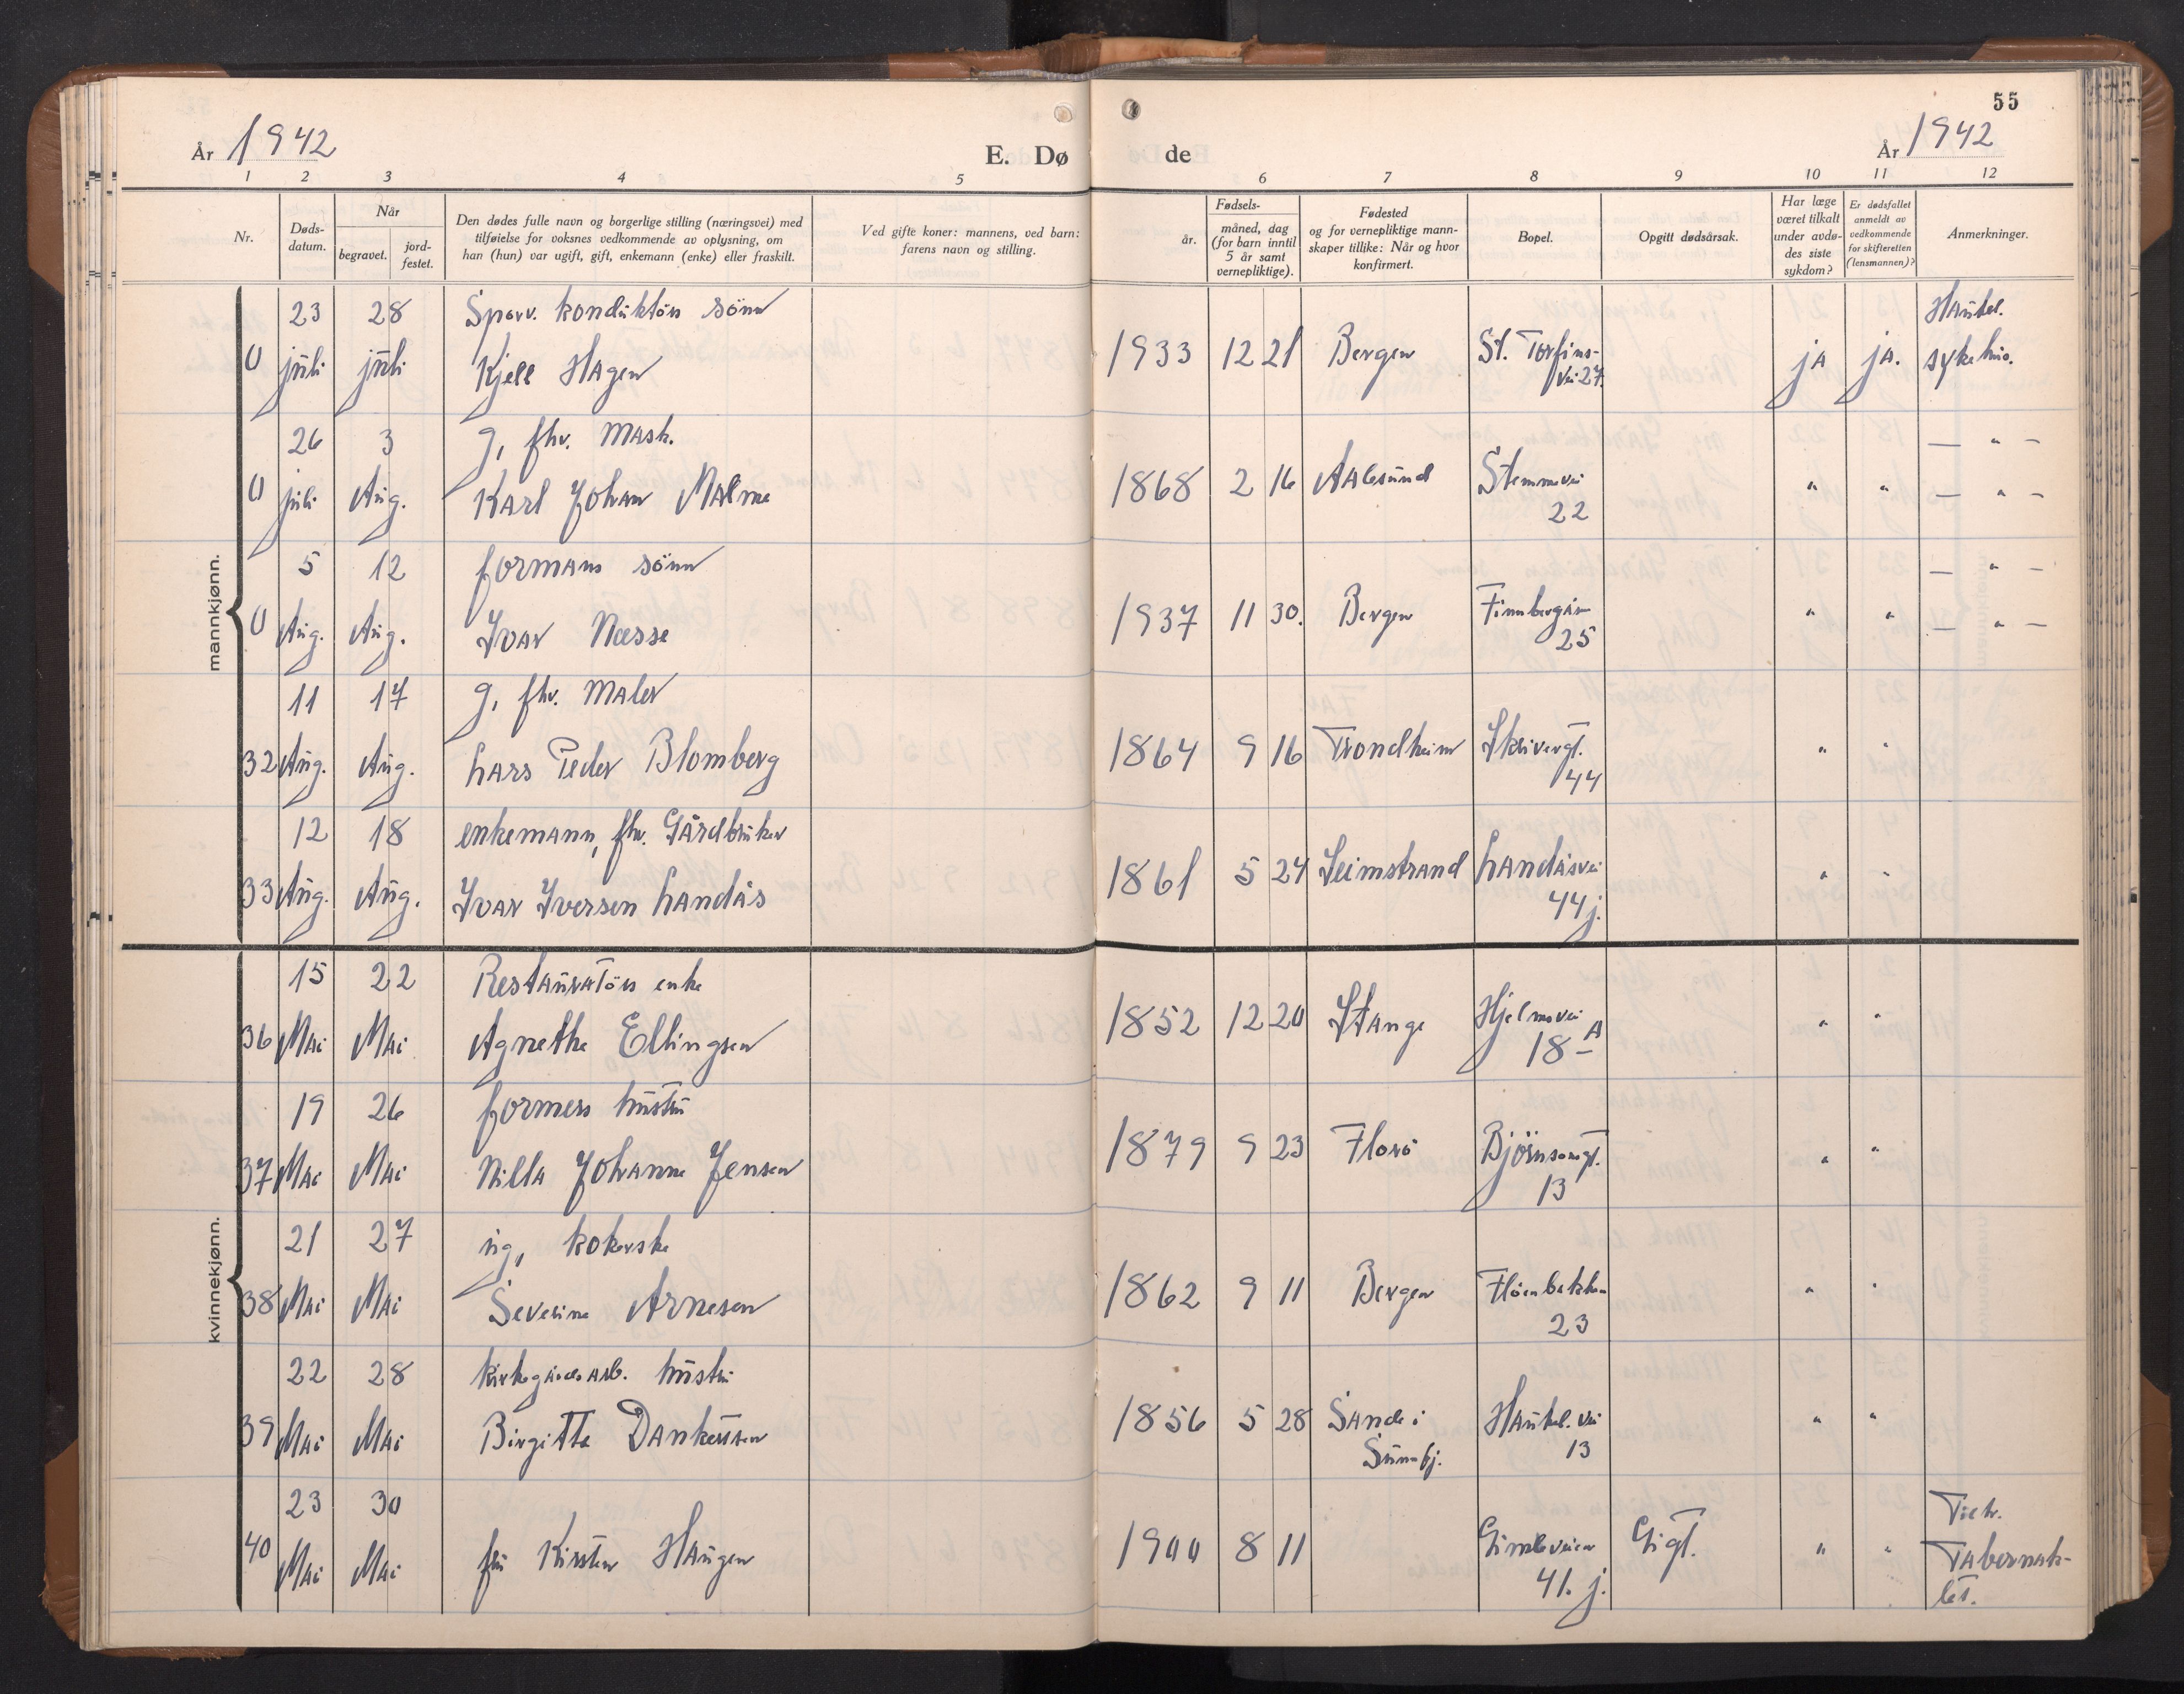 55
År 1942
E. Dø de
År 1942
1 2 3 4 5 6 7 8 9 10 11 12
Nr.
Døds-
datum.
Når
begravet.
jord-
festet.
Den dødes fulle navn og borgerlige stilling (næringsvei) med
tilføielse for voksnes vedkommende av oplysning, om
han (hun) var ugift, gift, enkemann (enke) eller fraskilt.
Ved gifte koner: mannens, ved barn:
farens navn og stilling.
Fødsels-
år.
måned, dag
(for barn inntil
5 år samt
vernepliktige).
Fødested
og for vernepliktige mann-
skaper tillike: Når og hvor
konfirmert.
Bopel.
Opgitt dødsårsak.
Har læge
været tilkalt
under avdø-
des siste
sykdom?
Er dødsfallet
anmeldt av
vedkommende
for skifteretten
(lensmannen)?
Anmerkninger.
mannkjønn.
23 28 Sporv. konduktørs sönn Haukel.
0 juli juli Kjell Hagen 1933 12 21 Bergen St. Torfins- ja ja. sykehus.
vei 27.
26 3 g, fhv. mask. — " —
0 juli Aug. Karl Johan Malme 1868 2 16 Aalesund Stemmevei " " — " —
22
5 12 formans sönn — " —
0 Aug. Aug. Ivar Næsse 1937 11 30. Bergen Finnbergåsv " " — " —
25
11 17 g, fhv. maler
32 Aug. Aug. Lars Peder Blomberg 1864 9 16 Trondheim Skivergt. " "
44
12 18 enkemann, fhv. Gårdbruker
33 Aug. Aug. Ivar Iversen Landås 1861 5 24 Leimstrand Landåsvei " "
44 j.
kvinnekjønn.
15 22 Restauratörs enke
36 Mai Mai Agnethe Ellingsen 1852 12 20 Stange Hjelmsvei " "
18 A
19 26 formers hustru
37 Mai Mai Nilla Johanne Jensen 1879 9 23 Florö Björnsonsgt. " "
13
21 27 ug, kokerske
38 Mai Mai Severine Arnesen 1862 9 11 Bergen Flöenbakken " "
23
22 28 kirkegårdsarb. hustru
39 Mai Mai Birgitte Dankertsen 1856 5 28 Sande i Haukel. vei " "
Sunnfj. 13
23 30
40 Mai Mai fru Kirsten Haugen 1900 8 11 Gimleveien Gigt. " " Tabernak-
41. j. let.